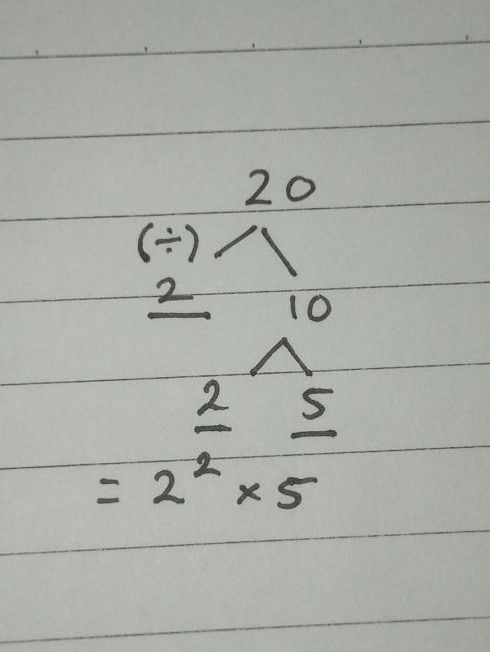 20
(÷)
2 10
2 5
= 2² × 5